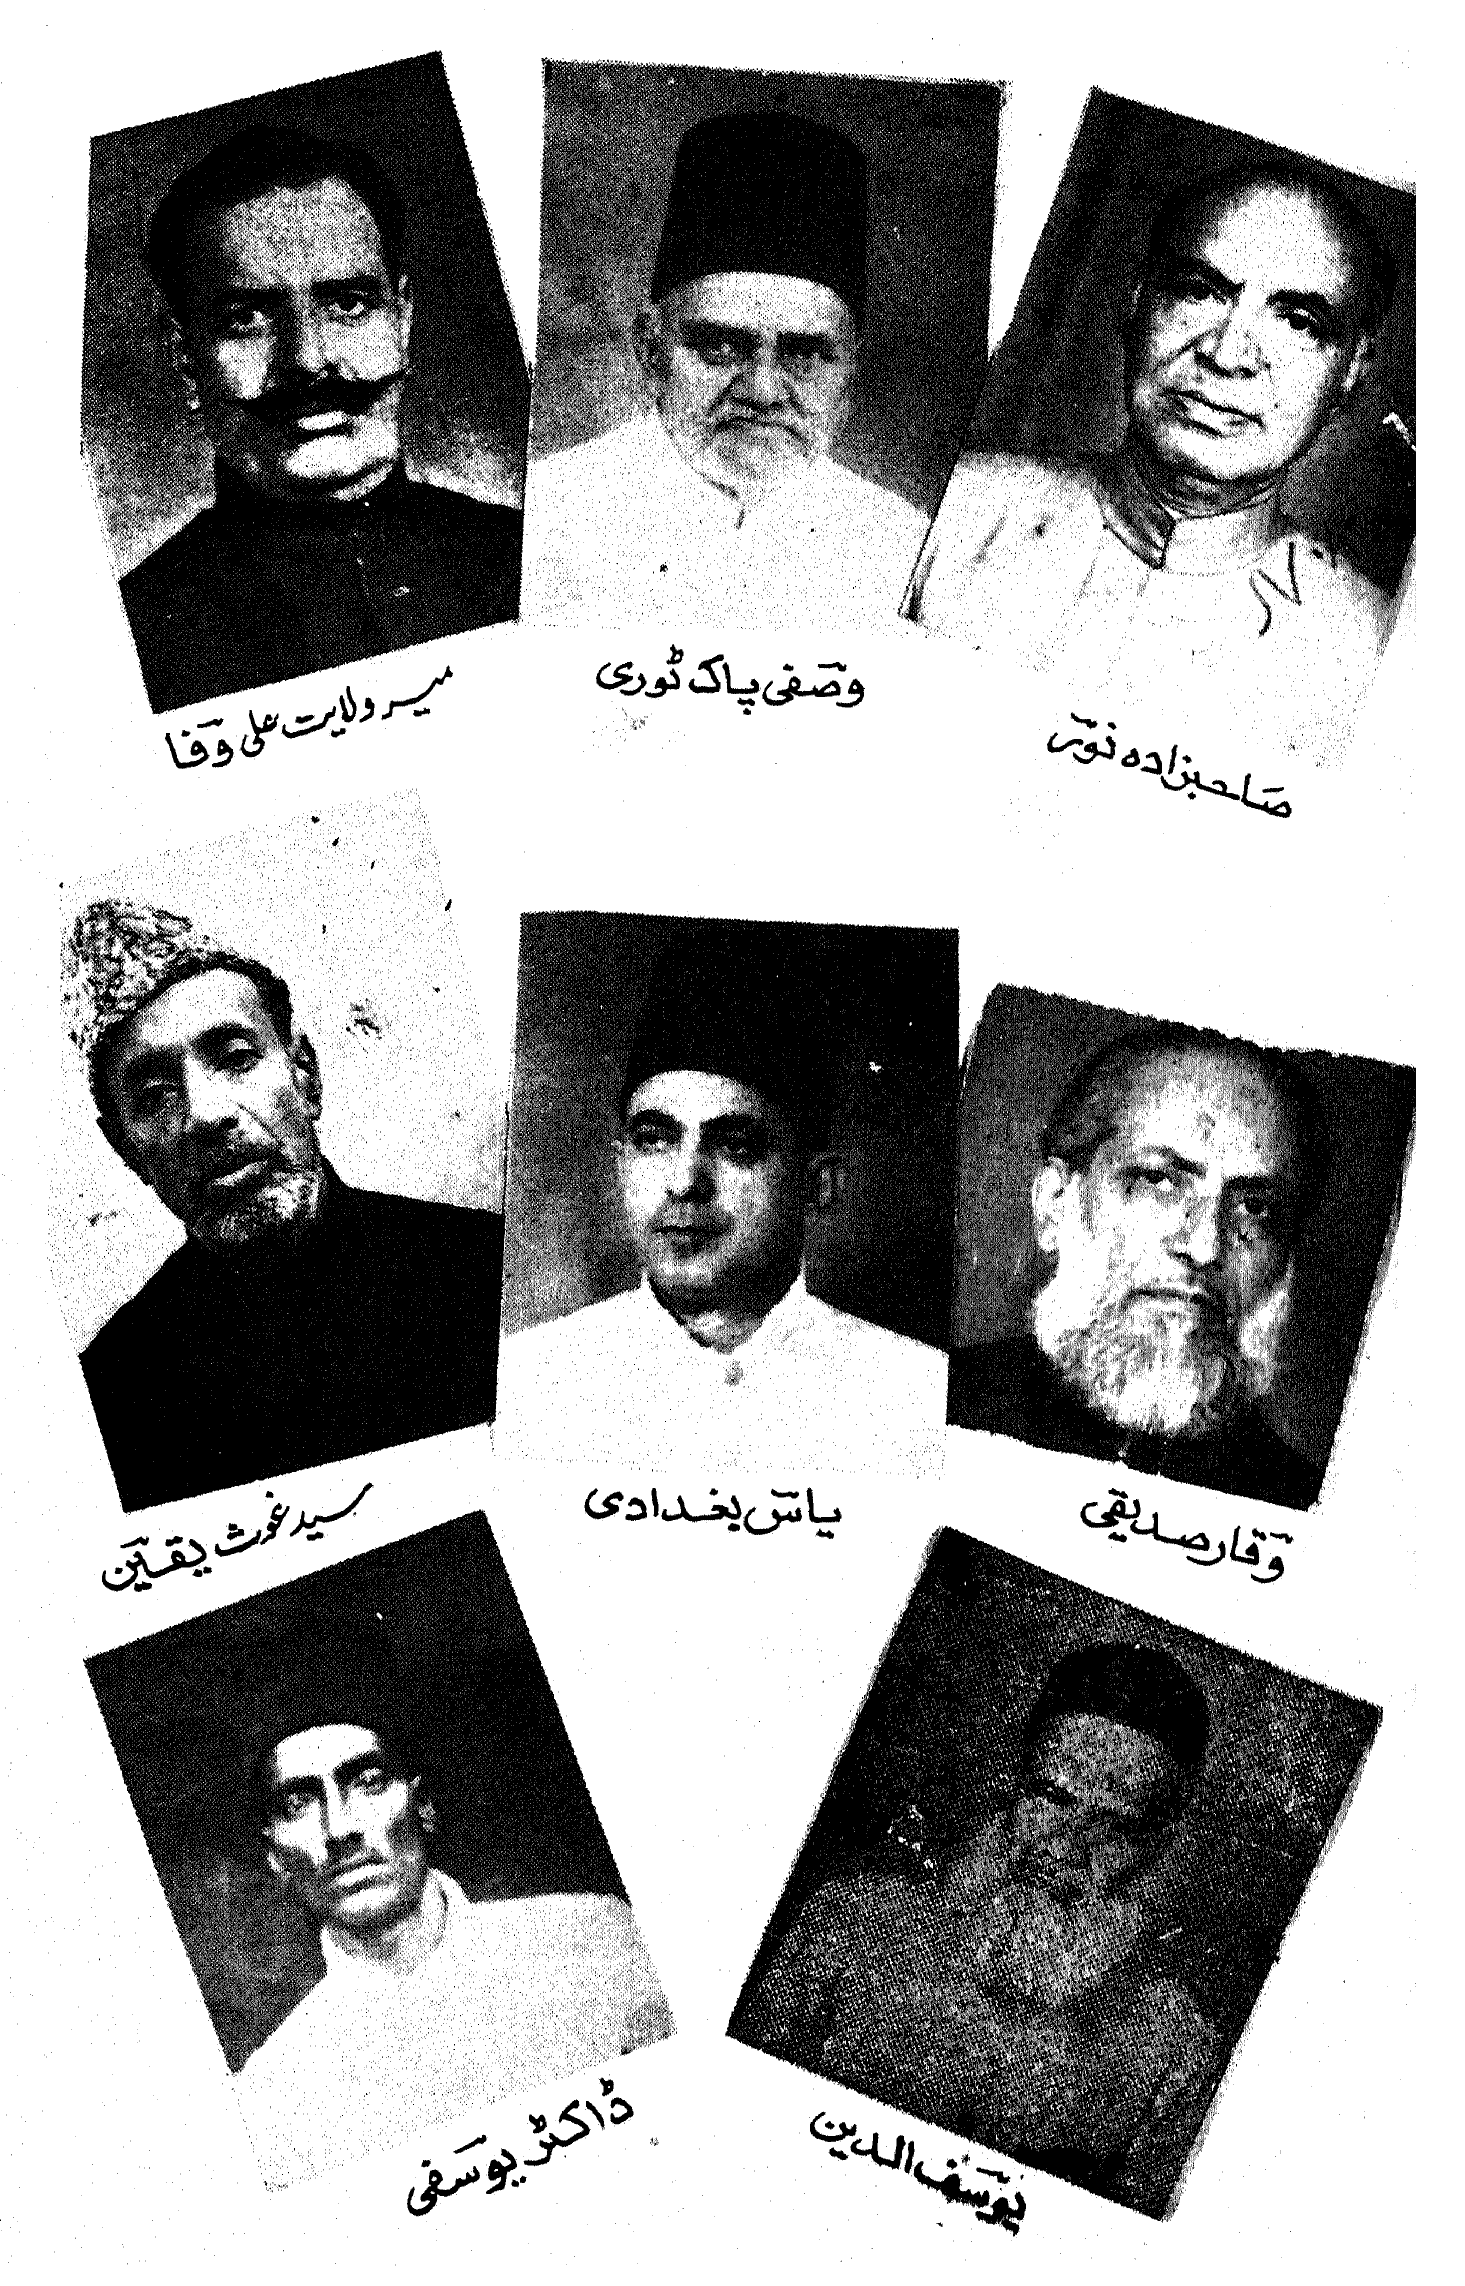 صاحبزادہ نور
وصفی پاک ٹوری
میر ولایت علی وفا
وقار صدیقی
یاس بغدادی
سید غوث یقین
یوسف الدین
ڈاکٹر یوسفی